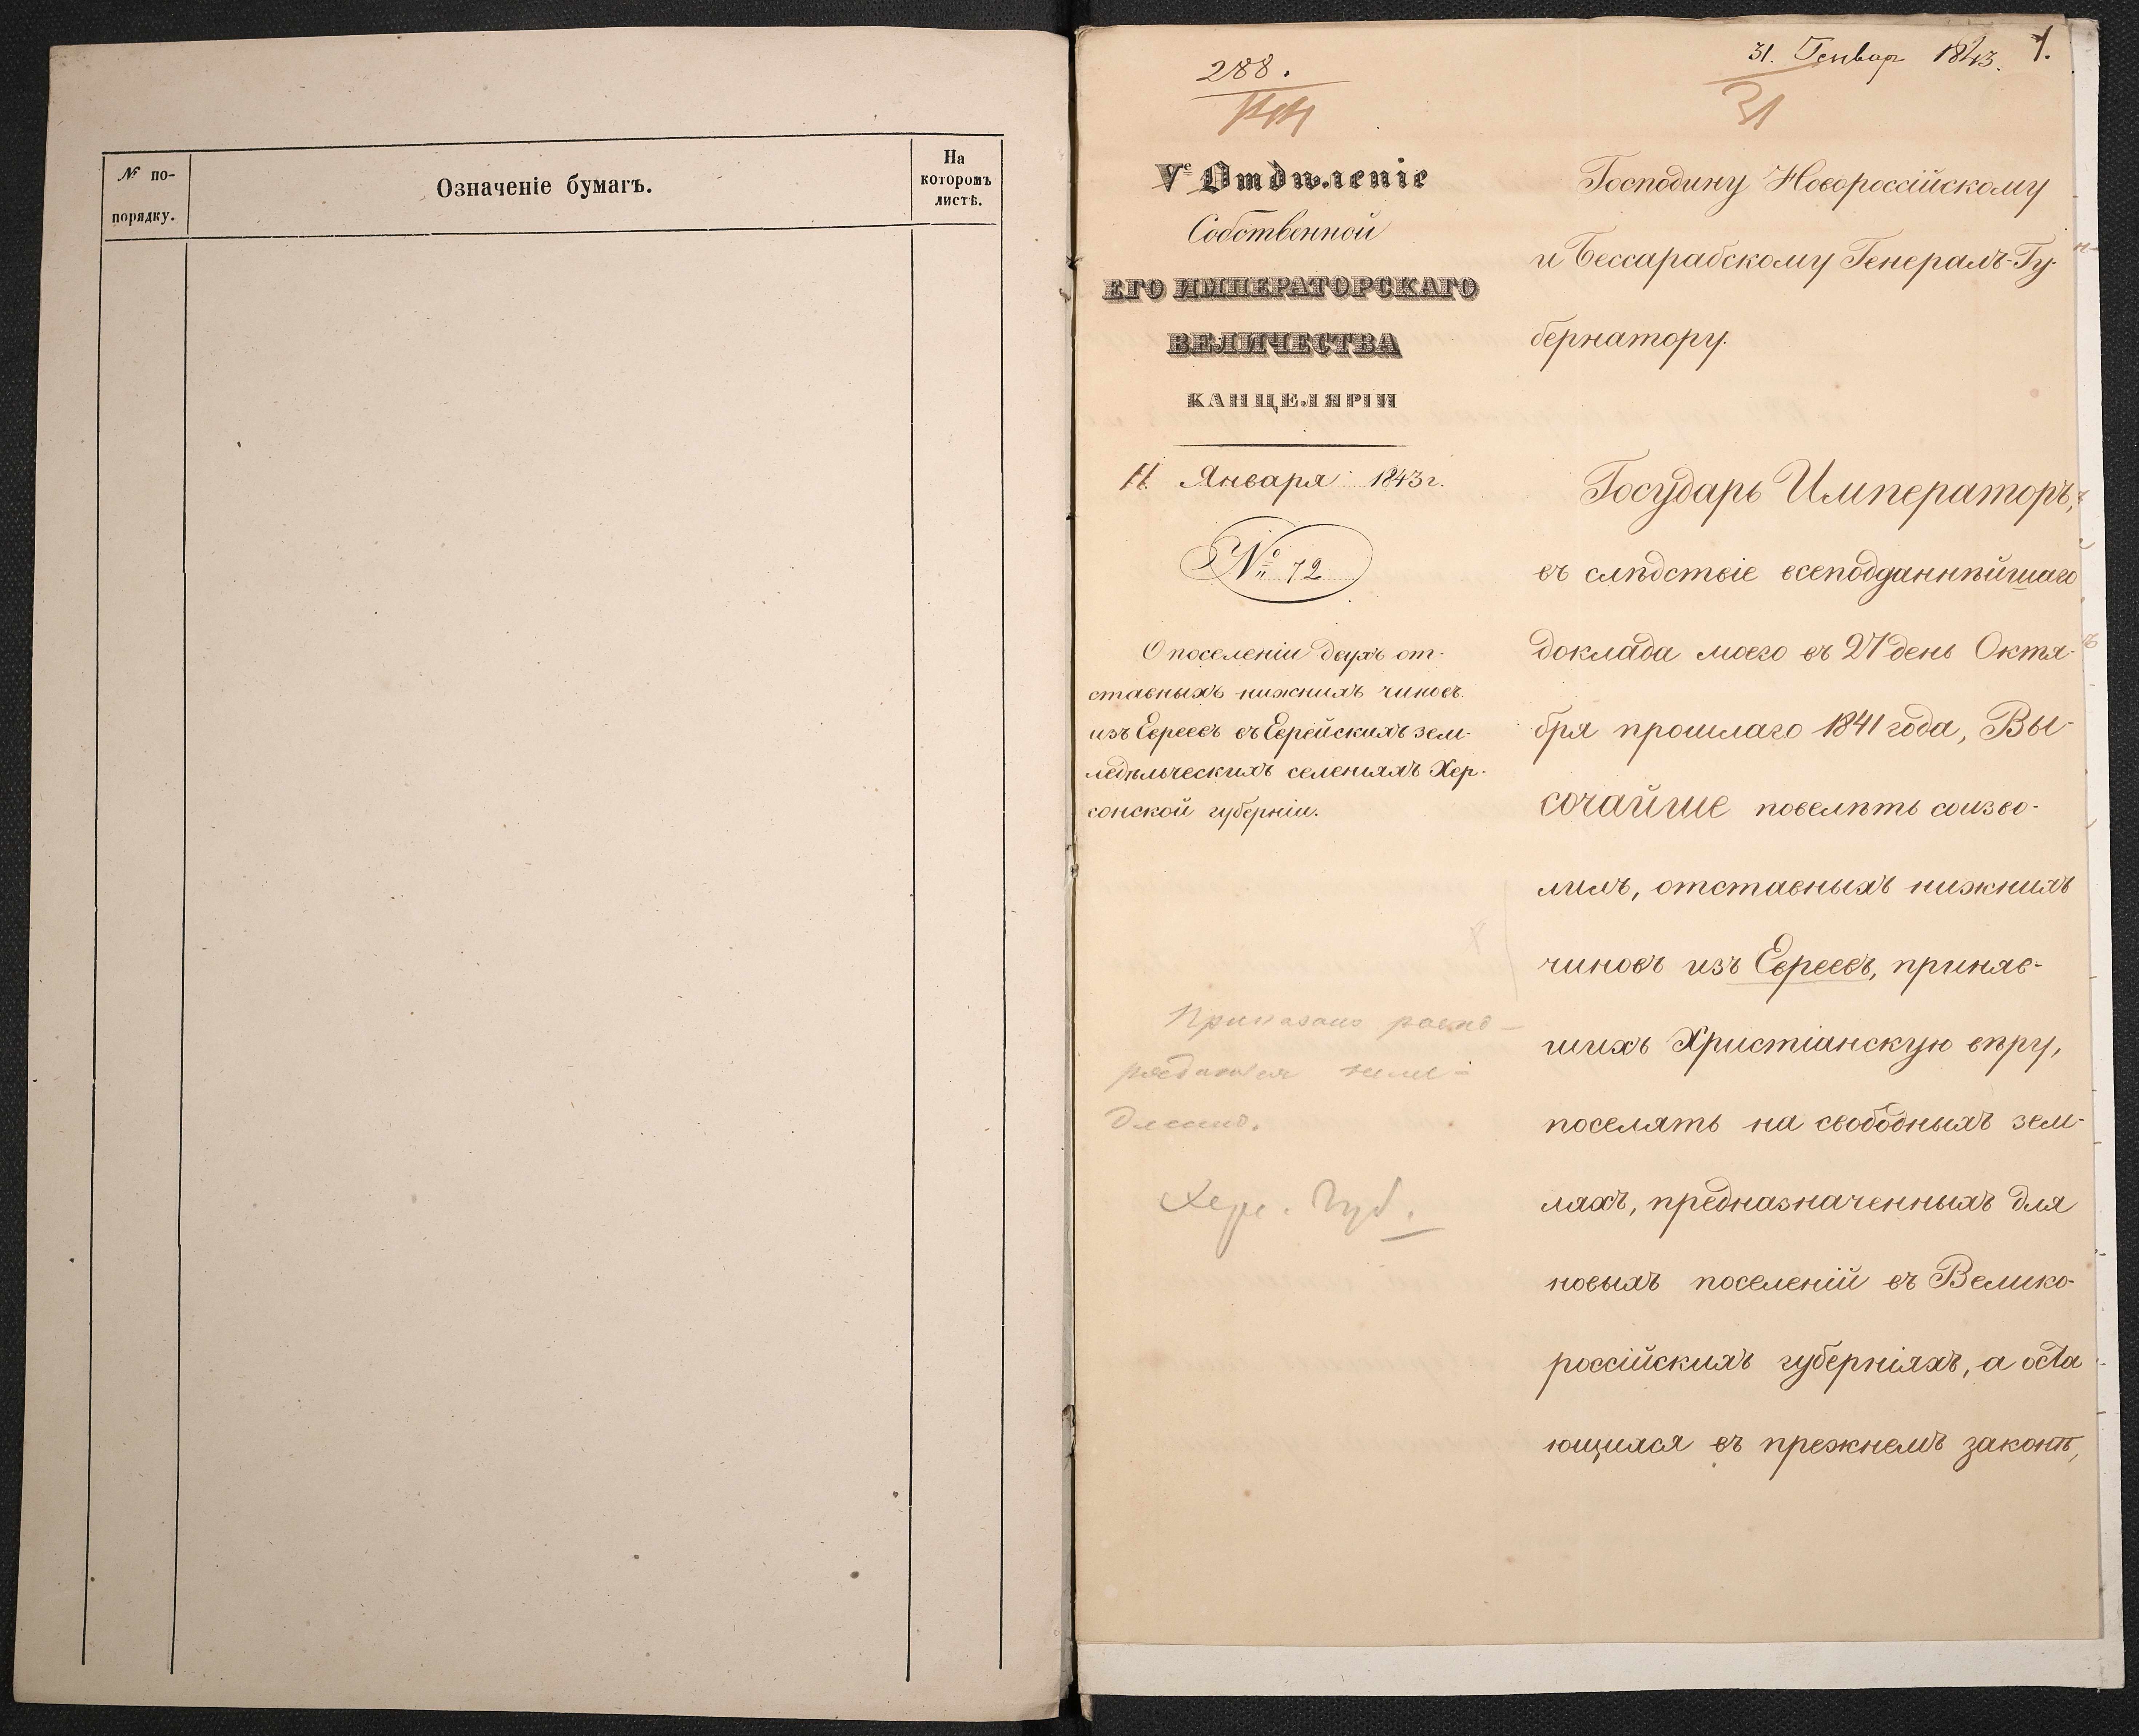 № по-
порядку.
Означеніе бумагъ.
На
которомъ
листѣ.
288.
31. Генвар 1843. 1.
31
Vе Отдѣленіе
Собственной
ЕГО ИМПЕРАТОРСКАГО
ВЕЛИЧЕСТВА
КАНЦЕЛЯРІИ
11. Января 1843 г.
№ 72
О поселеніи двухъ от-
ставныхъ нижнихъ чиновъ
изъ Евреевъ въ Еврейскихъ зем-
ледѣльческихъ селеніяхъ Хер-
сонской губерніи.
Приказано распо-
рядиться
Херс. Губ.
Господину Новороссійскому
и Бессарабскому Генералъ-Гу-
бернатору.
Государь Императоръ,
въ слѣдствіе всеподданнѣйшаго
доклада моего въ 27 день Октя-
бря прошлаго 1841 года, Вы-
сочайше повелѣть соизво-
лилъ, отставныхъ нижнихъ
чиновъ изъ Евреевъ, приняв-
шихъ Христіанскую вѣру,
поселять на свободныхъ зем-
ляхъ, предназначенныхъ для
новыхъ поселеній въ Велико-
россійскихъ губерніяхъ, а оста-
ющихся въ прежнемъ законѣ,